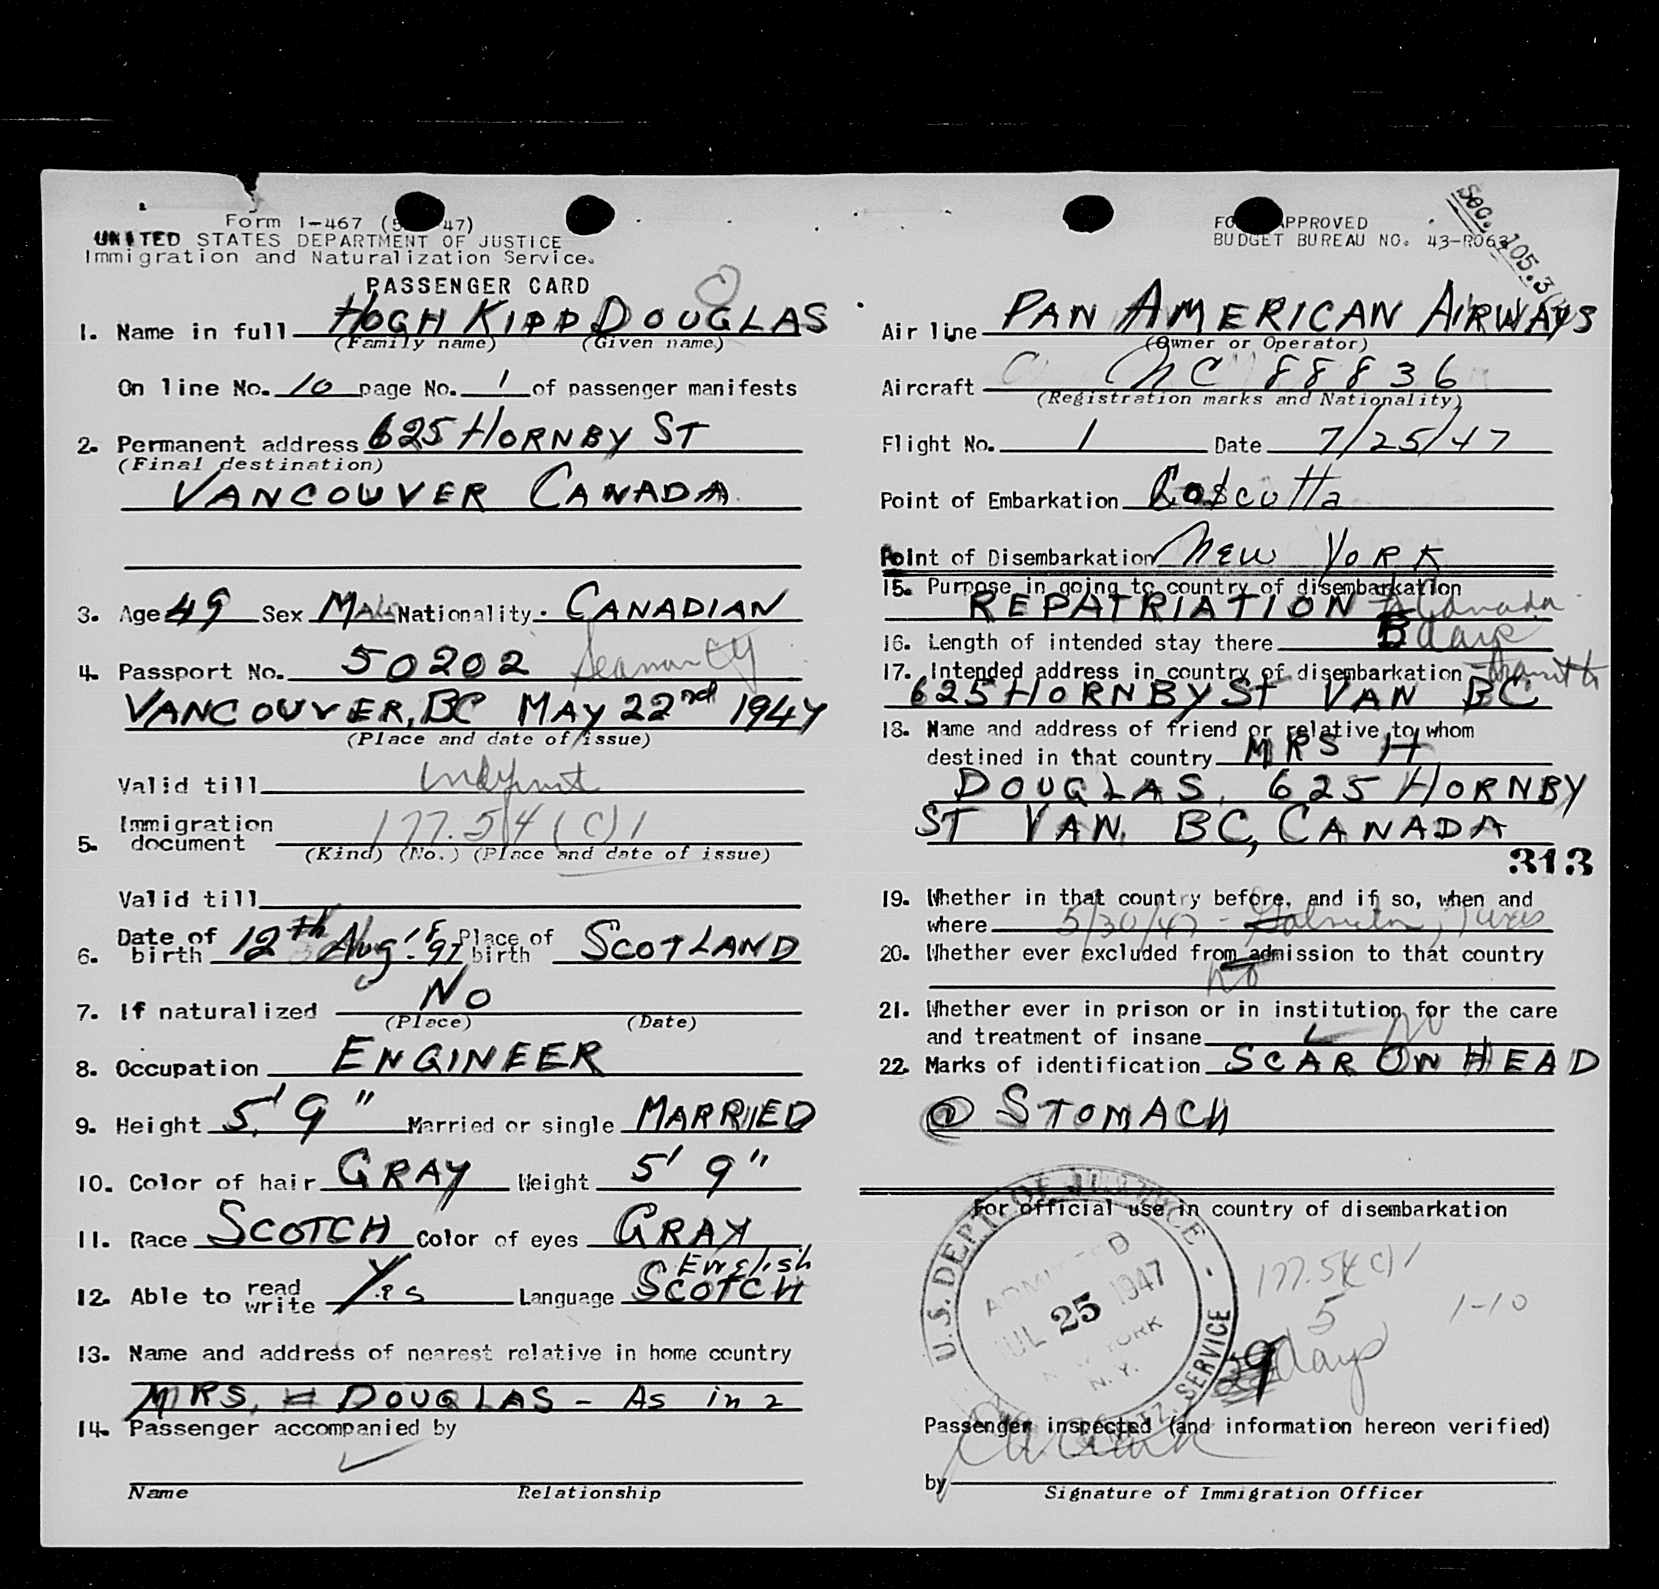 Form I-467 (5 47)
UNITED STATES DEPARTMENT OF JUSTICE
Immigration and Naturalization Service.
PASSENGER CARD
1. Name in full HUGH KIDD DOUGLAS
(Family name) (Given name)
On line No. 10 page No. 1 of passenger manifests
2. Permanent address 625 HORNBY ST
(Final destination)
VANCOUVER CANADA
3. Age 49 Sex MALE Nationality. CANADIAN
4. Passport No. 50202 Seaman
VANCOUVER, BC MAY 22nd 1947
(Place and date of issue)
Valid till indefinit
5. Immigration document 177.54 (C) 1
(Kind) (No.) (Place and date of issue)
Valid till
6. Date of birth 12th Aug. '97 Place of birth SCOTLAND
7. If naturalized NO
(Place) (Date)
8. Occupation ENGINEER
9. Height 5' 9" Married or single MARRIED
10. Color of hair GRAY Weight 5' 9"
11. Race SCOTCH Color of eyes GRAY
12. Able to read write Yes Language English SCOTCH
13. Name and address of nearest relative in home country
MRS. H DOUGLAS - As in 2
14. Passenger accompanied by
Name Relationship
FO APPROVED
BUDGET BUREAU NO. 43-R063
Sec. 105.3
Air line PAN AMERICAN AIRWAYS
(Owner or Operator)
Aircraft NC 88836
(Registration marks and Nationality)
Flight No. 1 Date 7/25/47
Point of Embarkation Calcutta
Point of Disembarkation NEW YORK
15. Purpose in going to country of disembarkation
REPATRIATION to Canada
16. Length of intended stay there days
17. Intended address in country of disembarkation
625 HORNBY ST VAN BC
18. Name and address of friend or relative to whom
destined in that country MRS H
DOUGLAS, 625 HORNBY
ST VAN, BC, CANADA
313
19. Whether in that country before, and if so, when and
where 5/30/47 - Galveston, Texas
20. Whether ever excluded from admission to that country
no
21. Whether ever in prison or in institution for the care
and treatment of insane no
22. Marks of identification SCAR ON HEAD
@ STOMACH
For official use in country of disembarkation
U.S. DEPT. OF JUSTICE - SERVICE
ADMITTED
JUL 25 1947
NEW YORK
N.Y.
177.54(C) 1
5
1-10
days
Passenger inspected (and information hereon verified)
by
Signature of Immigration Officer